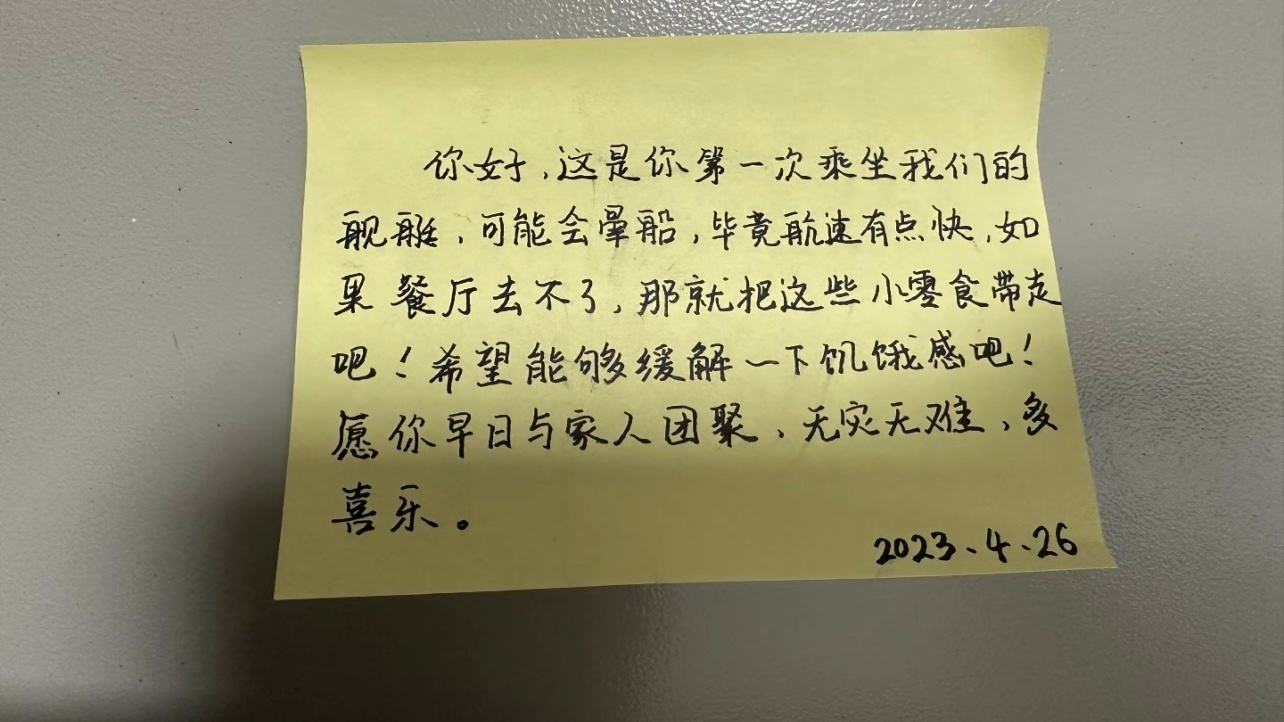 你好，这是你第一次乘坐我们的
舰艇，可能会晕船，毕竟航速有点快，如
果餐厅去不了，那就把这些小零食带走
吧！希望能够缓解一下饥饿感吧！
愿你早日与家人团聚，无灾无难，多
喜乐。
2023.4.26